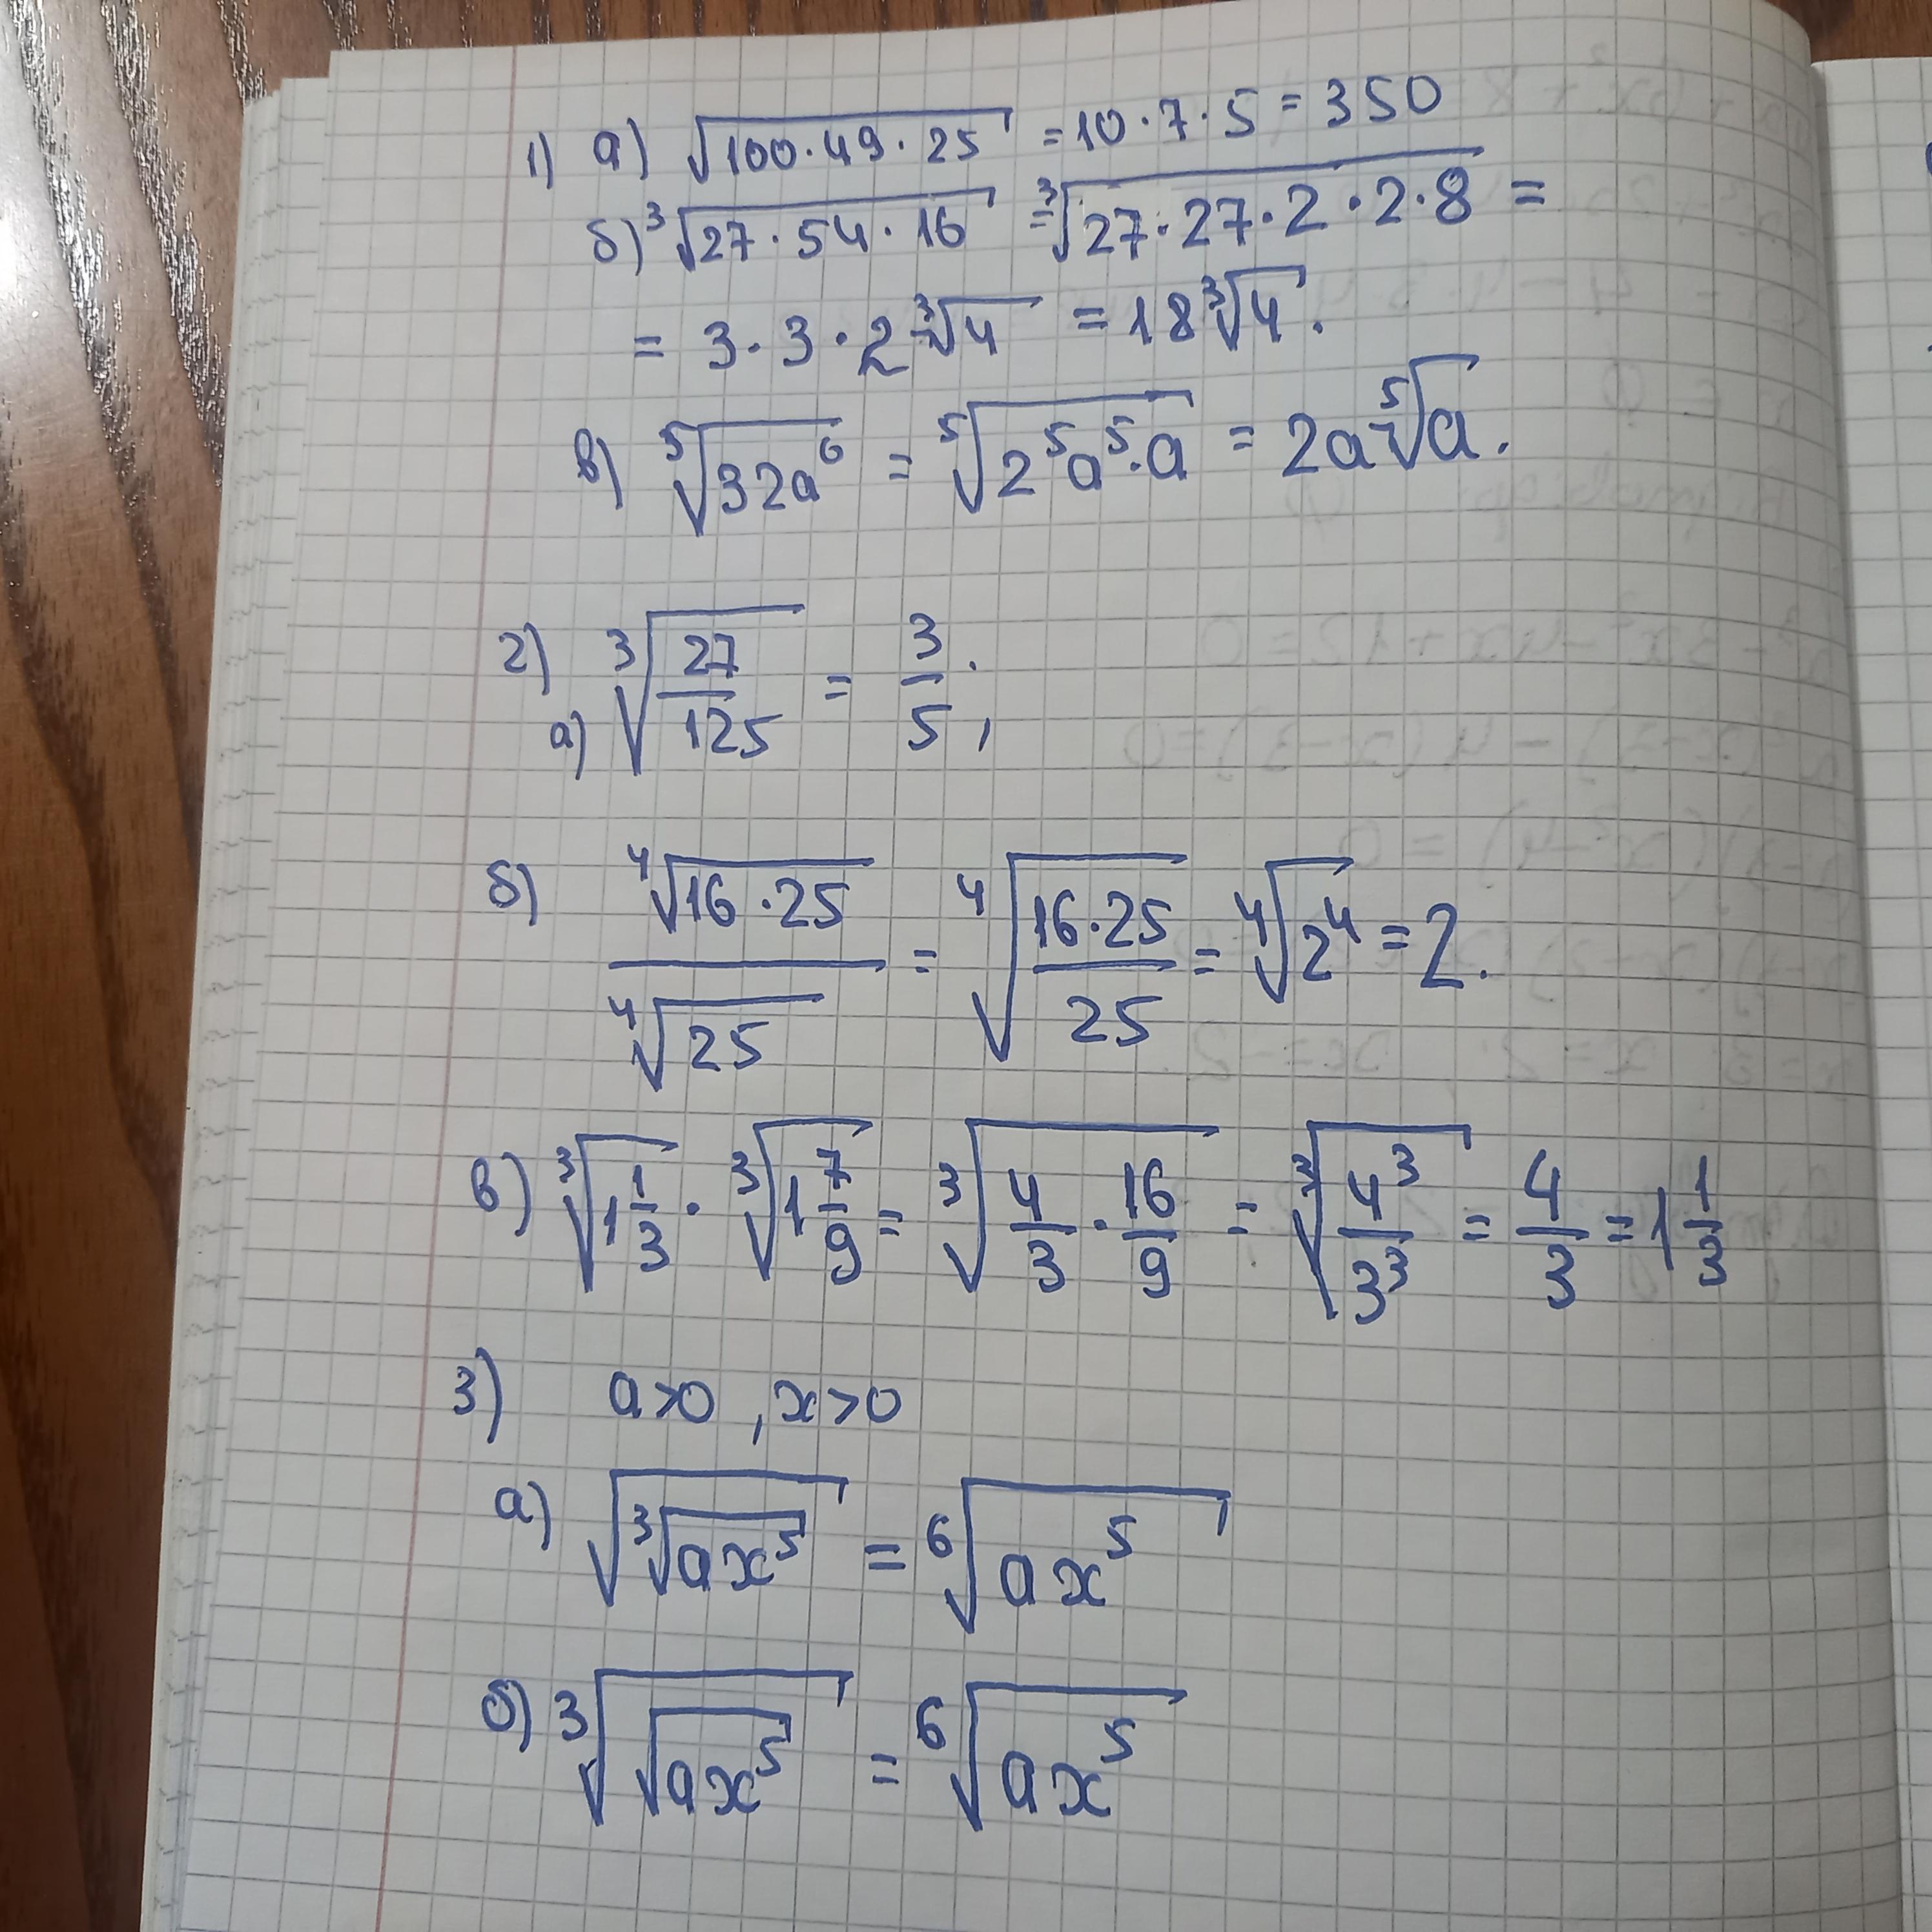 1) а) √(100·49·25) = 10·7·5 = 350
б) ³√(27·54·16) = ³√(27·27·2·2·8) =
= 3·3·2 ³√4 = 18 ³√4.
в) ⁵√(32a⁶) = ⁵√(2⁵a⁵·a) = 2a ⁵√a.
2)
а) ³√(27/125) = 3/5;
б) ⁴√(16·25) / ⁴√25 = ⁴√(16·25/25) = ⁴√(2⁴) = 2.
в) ³√(1 1/3) · ³√(1 7/9) = ³√(4/3 · 16/9) = ³√(4³/3³) = 4/3 = 1 1/3
3) a>0, x>0
а) √(³√(ax⁵)) = ⁶√(ax⁵)
б) ³√(√(ax⁵)) = ⁶√(ax⁵)